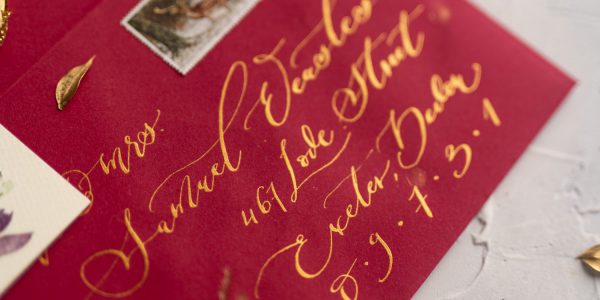 mrs.
Samuel
467 Lode Street
Exeter,
0.9.7.3.1